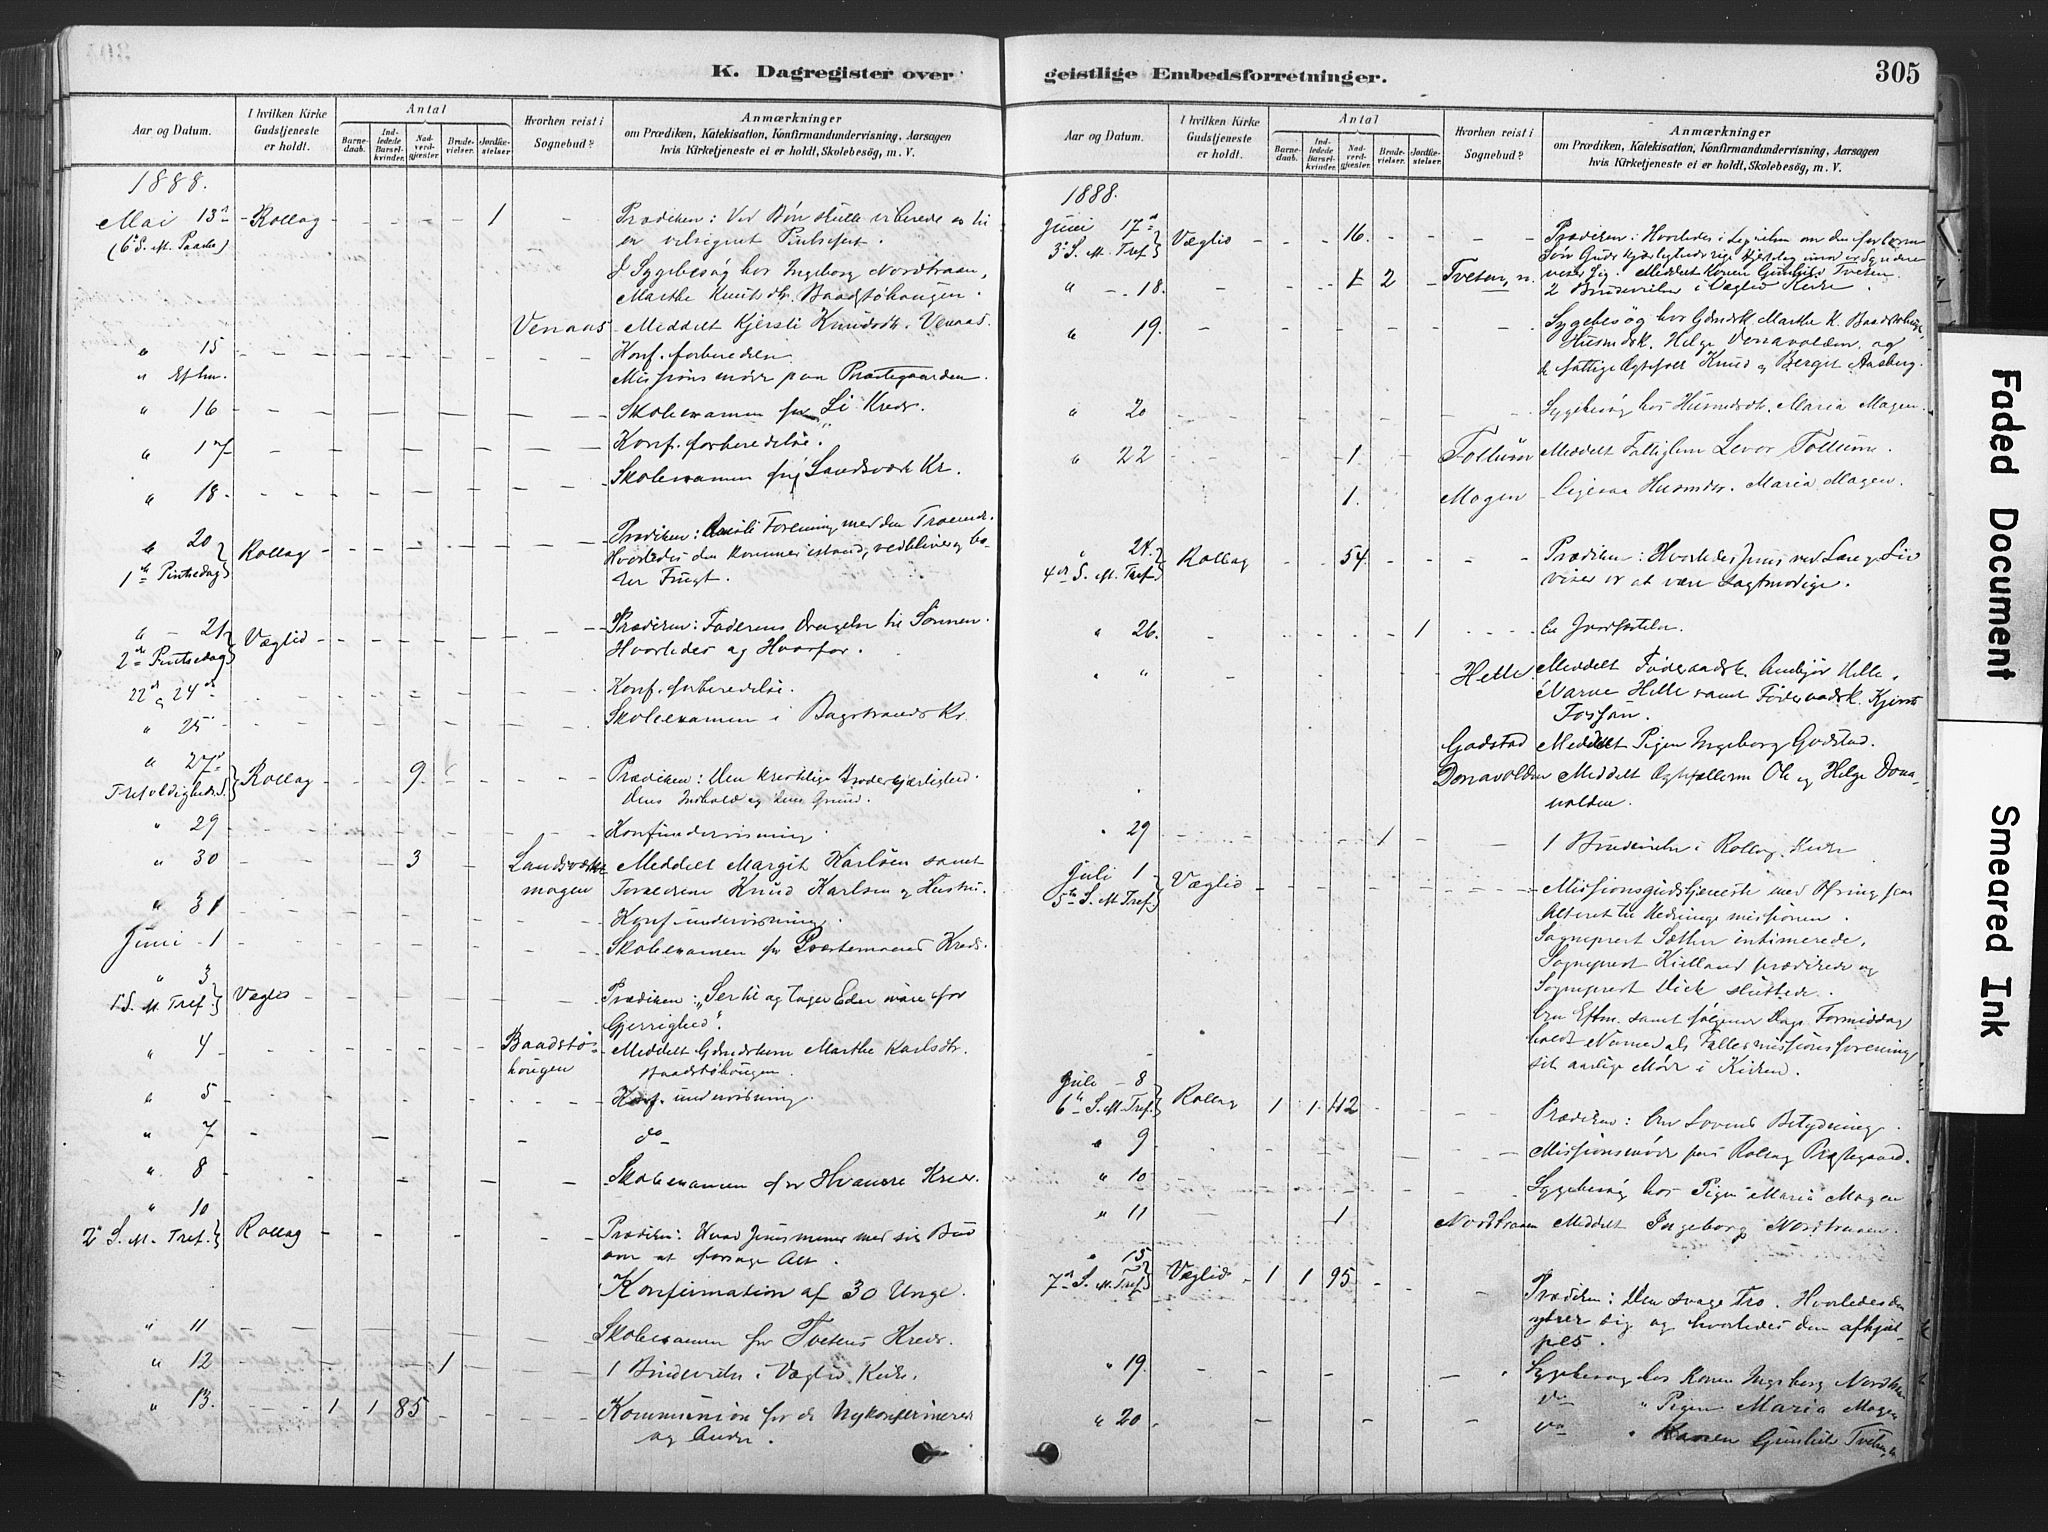 K. Dagregister over
Aar og Datum.
I hvilken Kirke
Gudstjeneste
er holdt.
Antal
Barne-
daab.
Ind-
ledede
Barsel-
kvinder.
Nad-
verd-
gjester
Brude-
vielser.
Jordfæ-
stelser
Hvorhen reist i
Sognebud?
Anmærkninger
om Prædiken, Katekisation, Konfirmandundervisning, Aarsagen
hvis Kirketjeneste ei er holdt, Skolebesög, m. V.
1888.
Mai 13de Rollag - - - - 1 - Prædiken: Ved Bøn skulle vi berede os til
(6te S. M. Paaske) en velsignet Pintsefest.
I Sygebesøg hos Ingeborg Nordtraaen,
Marthe Knutsdtr. Baadstøhaugen.
Venaas Meddelt Kjersti Knudsdtr. Venaas.
" 15 Konf. forberedelse.
" Efter. Missionsmøde paa Præstegaarden.
" 16 Skoleexamen for Li Kreds.
" 17 Konf. forberedelse.
" 18 Skoleexamen for Sandsværk Kr.
" 20 Rollag Prædiken: Forening med den Troende.
1ste Pintsedag Hvorledes den kommer istand, vedbliver og bæ-
rer Frugt.
" 21 Væglid Prædiken: Faderens Dragelse til Sønnen.
2den Pintsedag Hvorledes og Hvorfor.
22de og 24de Konf. forberedelse.
" 25 Skoleexamen i Bagstrands Kr.
" 27de Rollag 9 Prædiken: Den kristelige Broderkjærlighed.
Trefoldighedss. dens Indhold og dens Grund.
" 29 Konf. undervisning.
" 30 3 Sandsværk- Meddelt Margit Karlsen samt
mogen Forældrene Knud Karlsen og Hustru.
" 31 Konf. undervisning.
Juni 1 Skoleexamen for Præstemoens Kreds.
" 3 Væglid Prædiken: "Ser til og tager Eder vare for
1 S. M. Tref. Gjerrighed".
" 4 Baadstø- Meddelt Marthe Karlsdtr.
hougen Baadstøhougen.
" 5 Konf. undervisning.
" 7 do
" 8 Skoleexamen for Kreds.
" 10 Rollag Prædiken: Hvad Jesus mener med sit Bud
2den S. M. Tref. om at forsage Alt.
Konfirmation af 30 Unge.
" 11 Skoleexamen for Tvetens Kreds.
" 12 1 1 Brudevielse i Væglid Kirke.
" 13. 1 1 85 Kommunion for de Nykonfirmerede
og Andre.
geistlige Embedsforretninger.
305
Aar og Datum.
I hvilken Kirke
Gudstjeneste
er holdt.
Antal
Barne-
daab.
Ind-
ledede
Barsel-
kvinder.
Nad-
verd-
gjester
Brude-
vielser.
Jordfæ-
stelser.
Hvorhen reist i
Sognebud?
Anmærkninger
om Prædiken, Katekisation, Konfirmandundervisning, Aarsagen
hvis Kirketjeneste ei er holdt, Skolebesög, m. V.
1888.
Juni 17de Væglid 16. Prædiken: Hvorledes i Lignelsen om den fortabte
3die S. M. Tref. Søn Guds Kjærligheds rige Hjertelag imod Syndere
viser sig. Meddelt Konen Gunhild Tveten
" 18. 1 2 Tveten, n. 2 Brudevielser i Væglid Kirke.
" 19. Sygebesøg hos Marthe K. Baadstøhaug,
Husmdsk. Helge Donavolden og
de fattige Ægtefolk Knud og Bergit Aasberg.
" 20 Sygebesøg hos Husmdsdtr. Maria Mogen.
" 22 1. Tollum Meddelt Fattiglem Levor Tollum.
1. Mogen Ligesaa Husmdsdtr. Maria Mogen.
" 24. Rollag 54. Prædiken: Hvorledes Jesus ved Lære og Liv
4de S. M. Tref. viser os at være sagtmodige.
" 26. 1 En Jordfæstelse.
" " Helle Meddelt Føderaadsk. Helle,
Narve Helle samt Føderaadsk. Kjersti
Fossan.
Godstad Meddelt Pigen Ingeborg Godstad.
Donavolden Meddelt Ægtefællerne Ole og Helge Dona-
volden.
" 29 1 1 Brudevielse i Rollag Kirke
Juli 1 Væglid Missionsgudstjeneste med Ofring paa
5te S. M. Tref. Alteret til Hedningemissionen.
Sogneprest Sæther intimerede,
Sogneprest Kielland prædikede og
Sogneprest Dick sluttede.
Om Eftm. samt følgende Dags Formiddag
holdt Numedals Fællesmissionsforening
sit aarlige Møde i Kirken.
Juli 8 Rollag 1 1 42
6te S. M. Tref. Prædiken: Om Lovens Betydning.
" 9 Missionsmøde paa Rollag Præstegaard.
" 10 Sygebesøg hos Pigen Maria Mogen
" 11 1 Nordtraaen Meddelt Ingeborg Nordtraaen.
" 15 Væglid 1 1 95
7de S. M. Tref. Prædiken: Den svage Tro. Hvorledes den
ytrer sig og hvorledes den afhjæl-
pes.
" 19. Sygebesøg hos Konen Ingeborg Nordtraaen
do " Pigen Maria Mogen
" 20 do " Konen Gunhild Tveten, n.
Faded Document
Smeared Ink